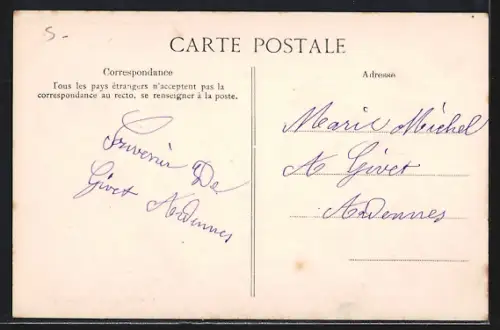 5-
CARTE POSTALE
Correspondance
Tous les pays étrangers n'acceptent pas la
correspondance au recto, se renseigner à la poste.
Souvenir De
Givet Ardennes
Adresse
Marie Michel
A Givet
Ardennes